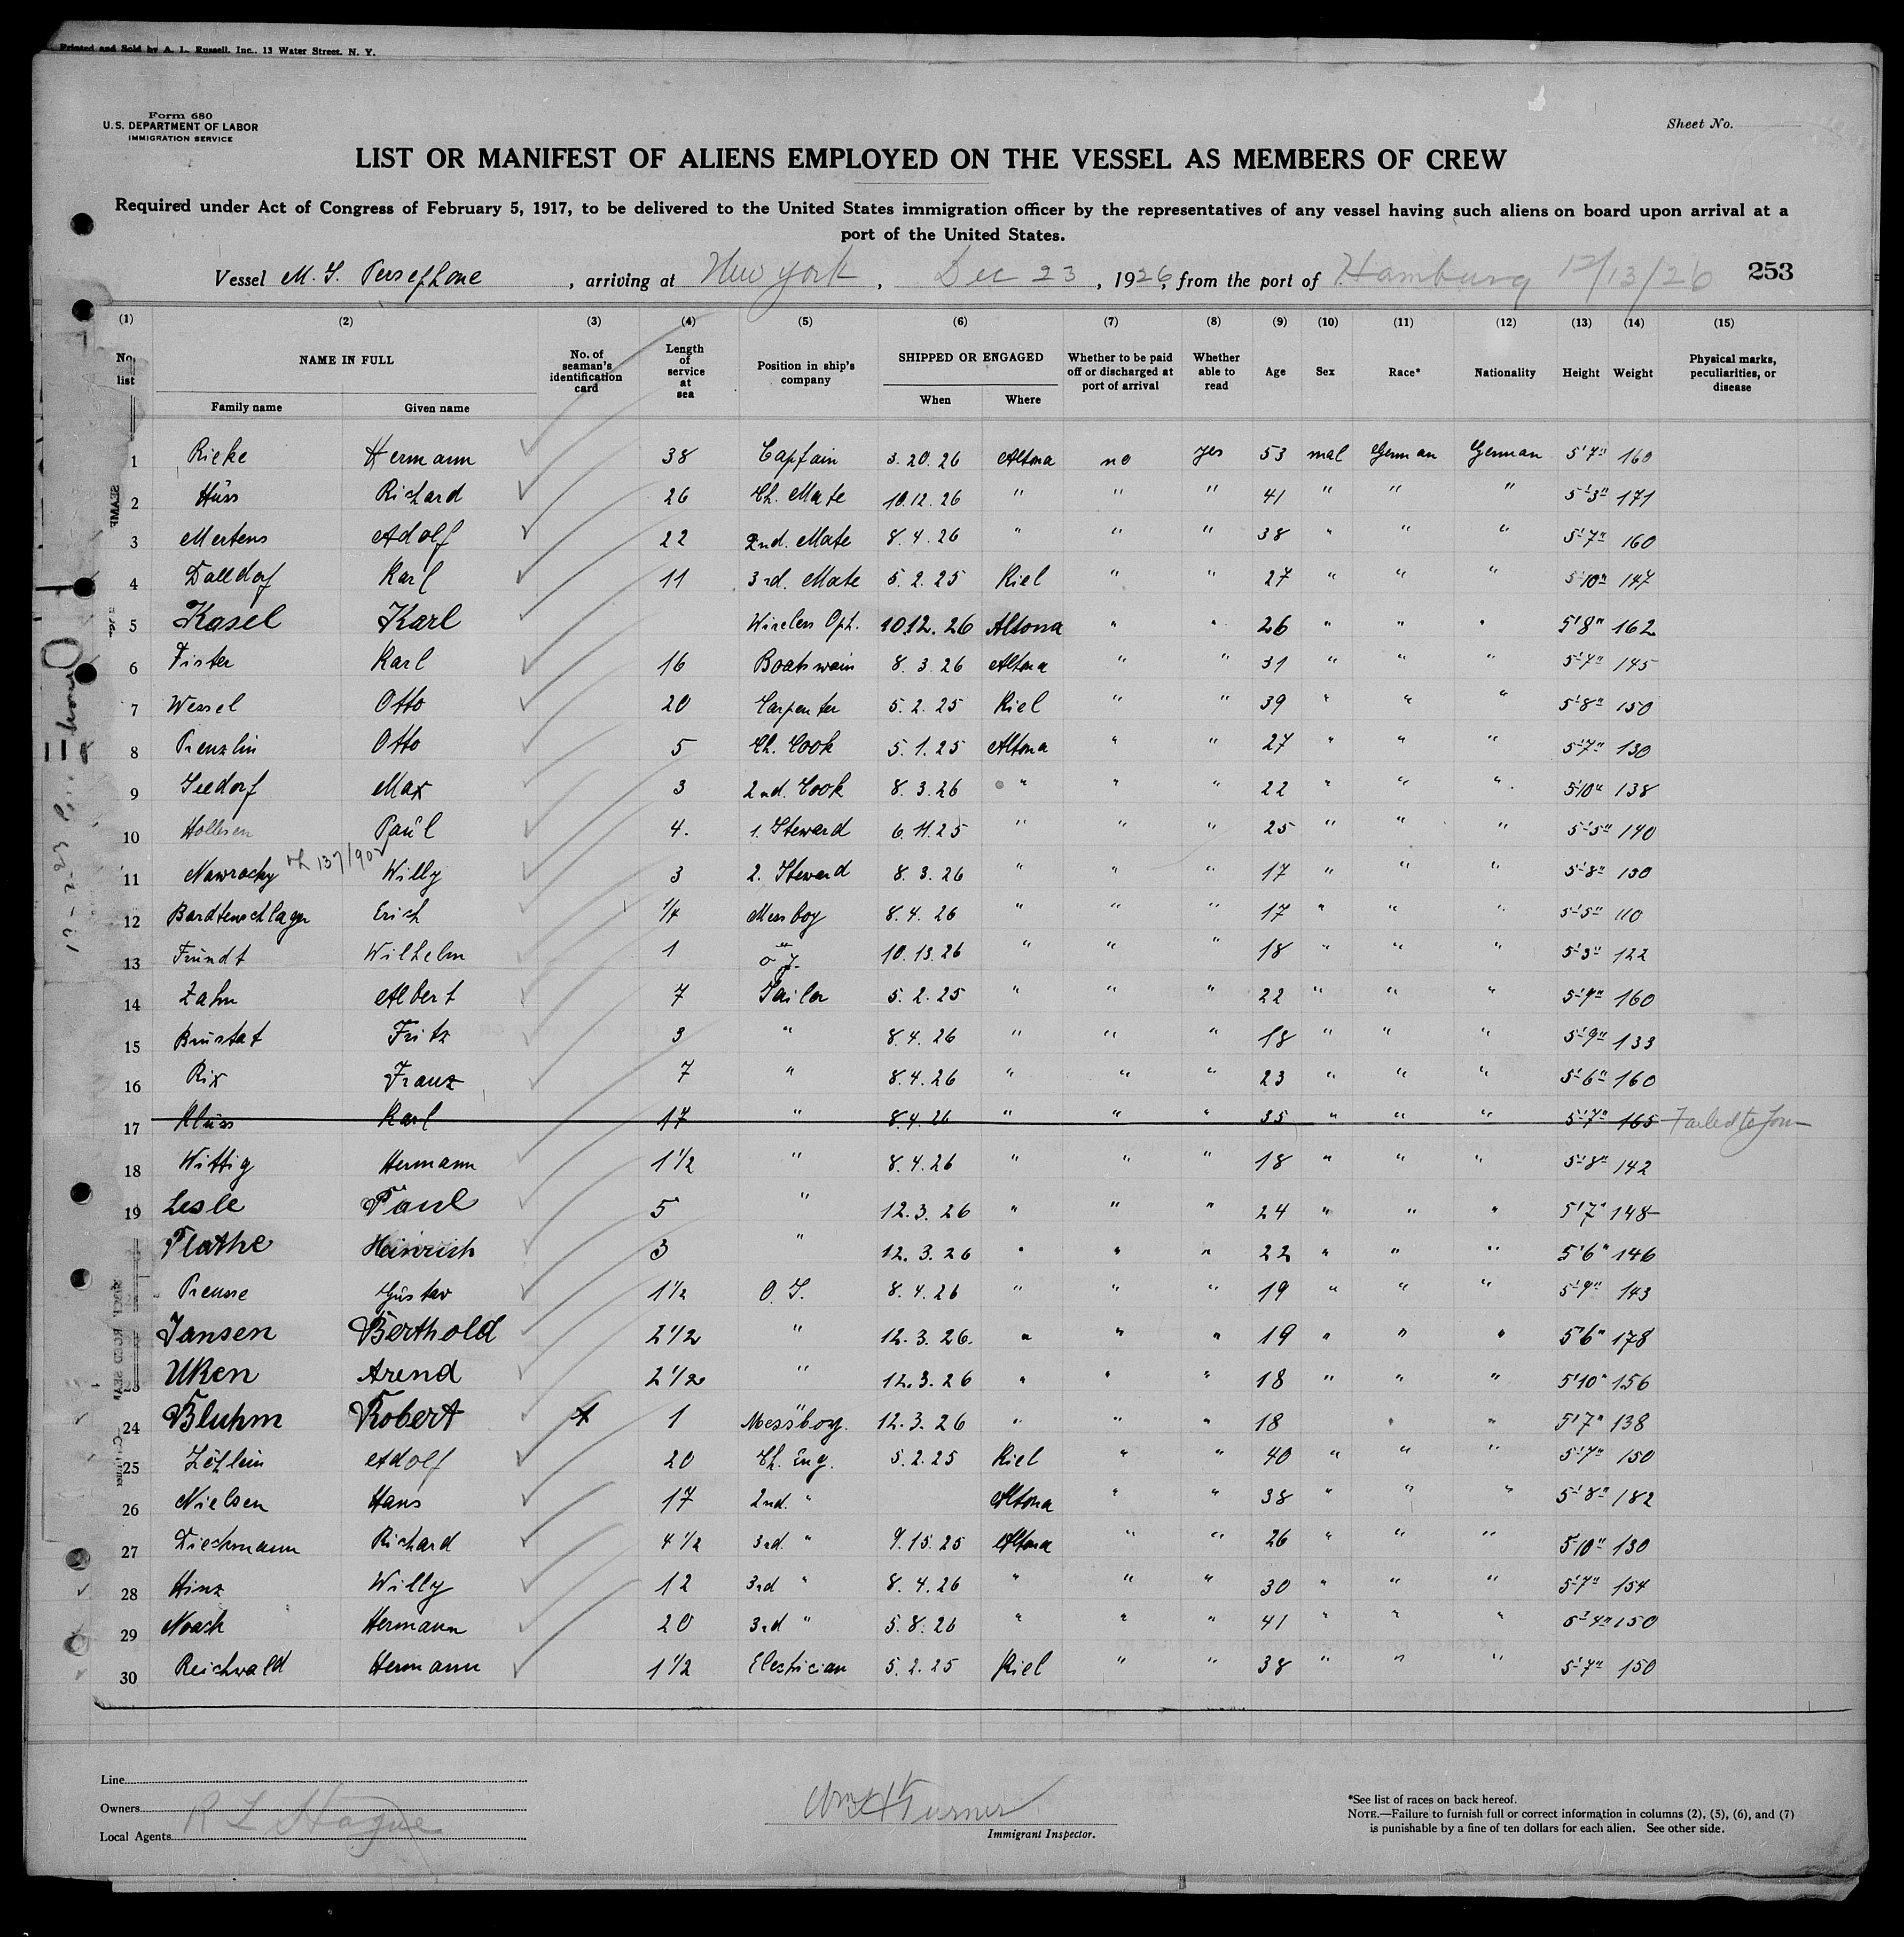 Printed and Sold by A. L. Russell, Inc., 13 Water Street, N. Y.
Form 680
U. S. DEPARTMENT OF LABOR
IMMIGRATION SERVICE
Sheet No.
LIST OR MANIFEST OF ALIENS EMPLOYED ON THE VESSEL AS MEMBERS OF CREW
Required under Act of Congress of February 5, 1917, to be delivered to the United States immigration officer by the representatives of any vessel having such aliens on board upon arrival at a
port of the United States.
Vessel M. S. Persephone, arriving at New York, Dec 23, 1926, from the port of Hamburg 12/13/26 253
(1) (2) (3) (4) (5) (6) (7) (8) (9) (10) (11) (12) (13) (14) (15)
No. list NAME IN FULL Family name Given name No. of seaman's identification card Length of service at sea Position in ship's company SHIPPED OR ENGAGED When Where Whether to be paid off or discharged at port of arrival Whether able to read Age Sex Race* Nationality Height Weight Physical marks, peculiarities, or disease
1 Rieke Hermann 38 Captain 3.20.26 Altona no yes 53 mal German German 5'7" 160
2 Hüss Richard 26 Ch. Mate 10.12.26 " " " 41 " " " 5'3" 171
3 Mertens Adolf 22 2nd. Mate 8.4.26 " " " 38 " " " 5'7" 160
4 Dalldorf Karl 11 3rd. Mate 5.2.25 Kiel " " 27 " " " 5'10" 147
5 Kasel Karl Wireless Opt. 10.12.26 Altona " " 26 " " " 5'8" 162
6 Fister Karl 16 Boatswain 8.3.26 Altona " " 31 " " " 5'7" 145
7 Wessel Otto 20 Carpenter 5.2.25 Kiel " " 39 " " " 5'8" 150
8 Prenzlin Otto 5 Ch. Cook 5.1.25 Altona " " 27 " " " 5'7" 130
9 Seedorf Max 3 2nd. Cook 8.3.26 " " " 22 " " " 5'10" 138
10 Hollesen Paul 4. 1. Steward 6.11.25 " " " 25 " " " 5'5" 140
11 Nawrocky Willy 3 2. Steward 8.3.26 " " " 17 " " " 5'8" 130
12 Bardtenschlager Erich Messboy 8.4.26 " " " 17 " " " 5'5" 110
13 Fründt Wilhelm 1 " 10.13.26 " " " 18 " " " 5'3" 122
14 Zahn Albert 7 Sailor 5.2.25 " " " 22 " " " 5'9" 160
15 Brustat Fritz 3 " 8.4.26 " " " 18 " " " 5'9" 133
16 Rix Franz 7 " 8.4.26 " " " 23 " " " 5'6" 160
17 Klüss Karl 17 " 8.4.26 " " " 35 " " " 5'7" 165 Failed to Join
18 Wittig Hermann 1 1/2 " 8.4.26 " " " 18 " " " 5'8" 142
19 Lesle Paul 5 " 12.3.26 " " " 24 " " " 5'7" 148
Plathe Heinrich 3 " 12.3.26 " " " 22 " " " 5'6" 146
Preusse Gustav 1 1/2 O. S. 8.4.26 " " " 19 " " " 5'9" 143
Jansen Berthold 2 1/2 " 12.3.26. " " " 19 " " " 5'6" 178
Uken Arend 2 1/2 " 12.3.26 " " " 18 " " " 5'10" 156
24 Bluhm Robert 1 Messboy. 12.3.26 " " " 18 " " 5'7" 138
25 Adolf 20 Ch. Eng. 5.2.25 Kiel " " 40 " " " 5'7" 150
26 Nielsen Hans 17 2nd. " Altona " " 38 " " " 5'8" 182
27 Dieckmann Richard 4 1/2 3rd. " 9.15.25 Altona " " 26 " " " 5'10" 130
28 Hinz Willy 12 3rd " 8.4.26 " " " 30 " " " 5'7" 154
29 Noack Hermann 20 3rd " 5.8.26 " " " 41 " " " 150
30 Reichwald Hermann 1 1/2 Electrician 5.2.25 Kiel " " 38 " " " 5'7" 150
Line
Owners
Local Agents R L Hague
Wm H Turner
Immigrant Inspector.
*See list of races on back hereof.
NOTE.—Failure to furnish full or correct information in columns (2), (5), (6), and (7)
is punishable by a fine of ten dollars for each alien. See other side.